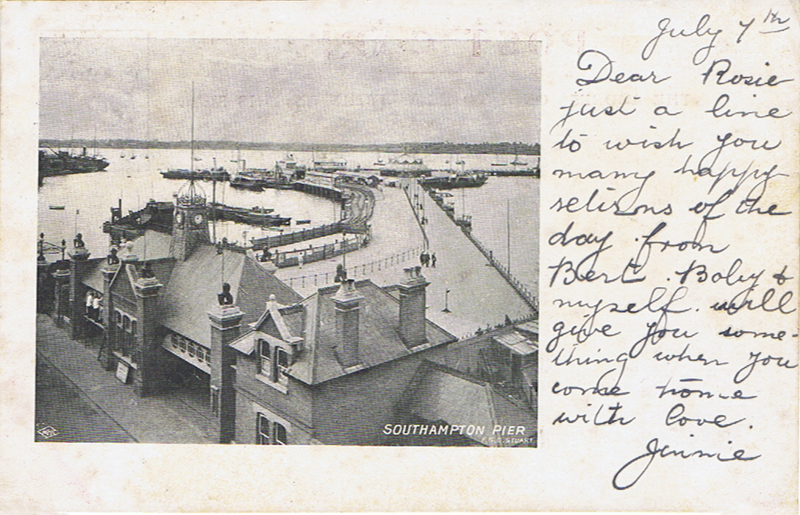 July 7th
Dear Rosie
just a line
to wish you
many happy
returns of the
day from
Bert. Baby &
myself. will
give you some-
thing when you
come home
with love.
Jinnie
SOUTHAMPTON PIER
F.G.O. STUART